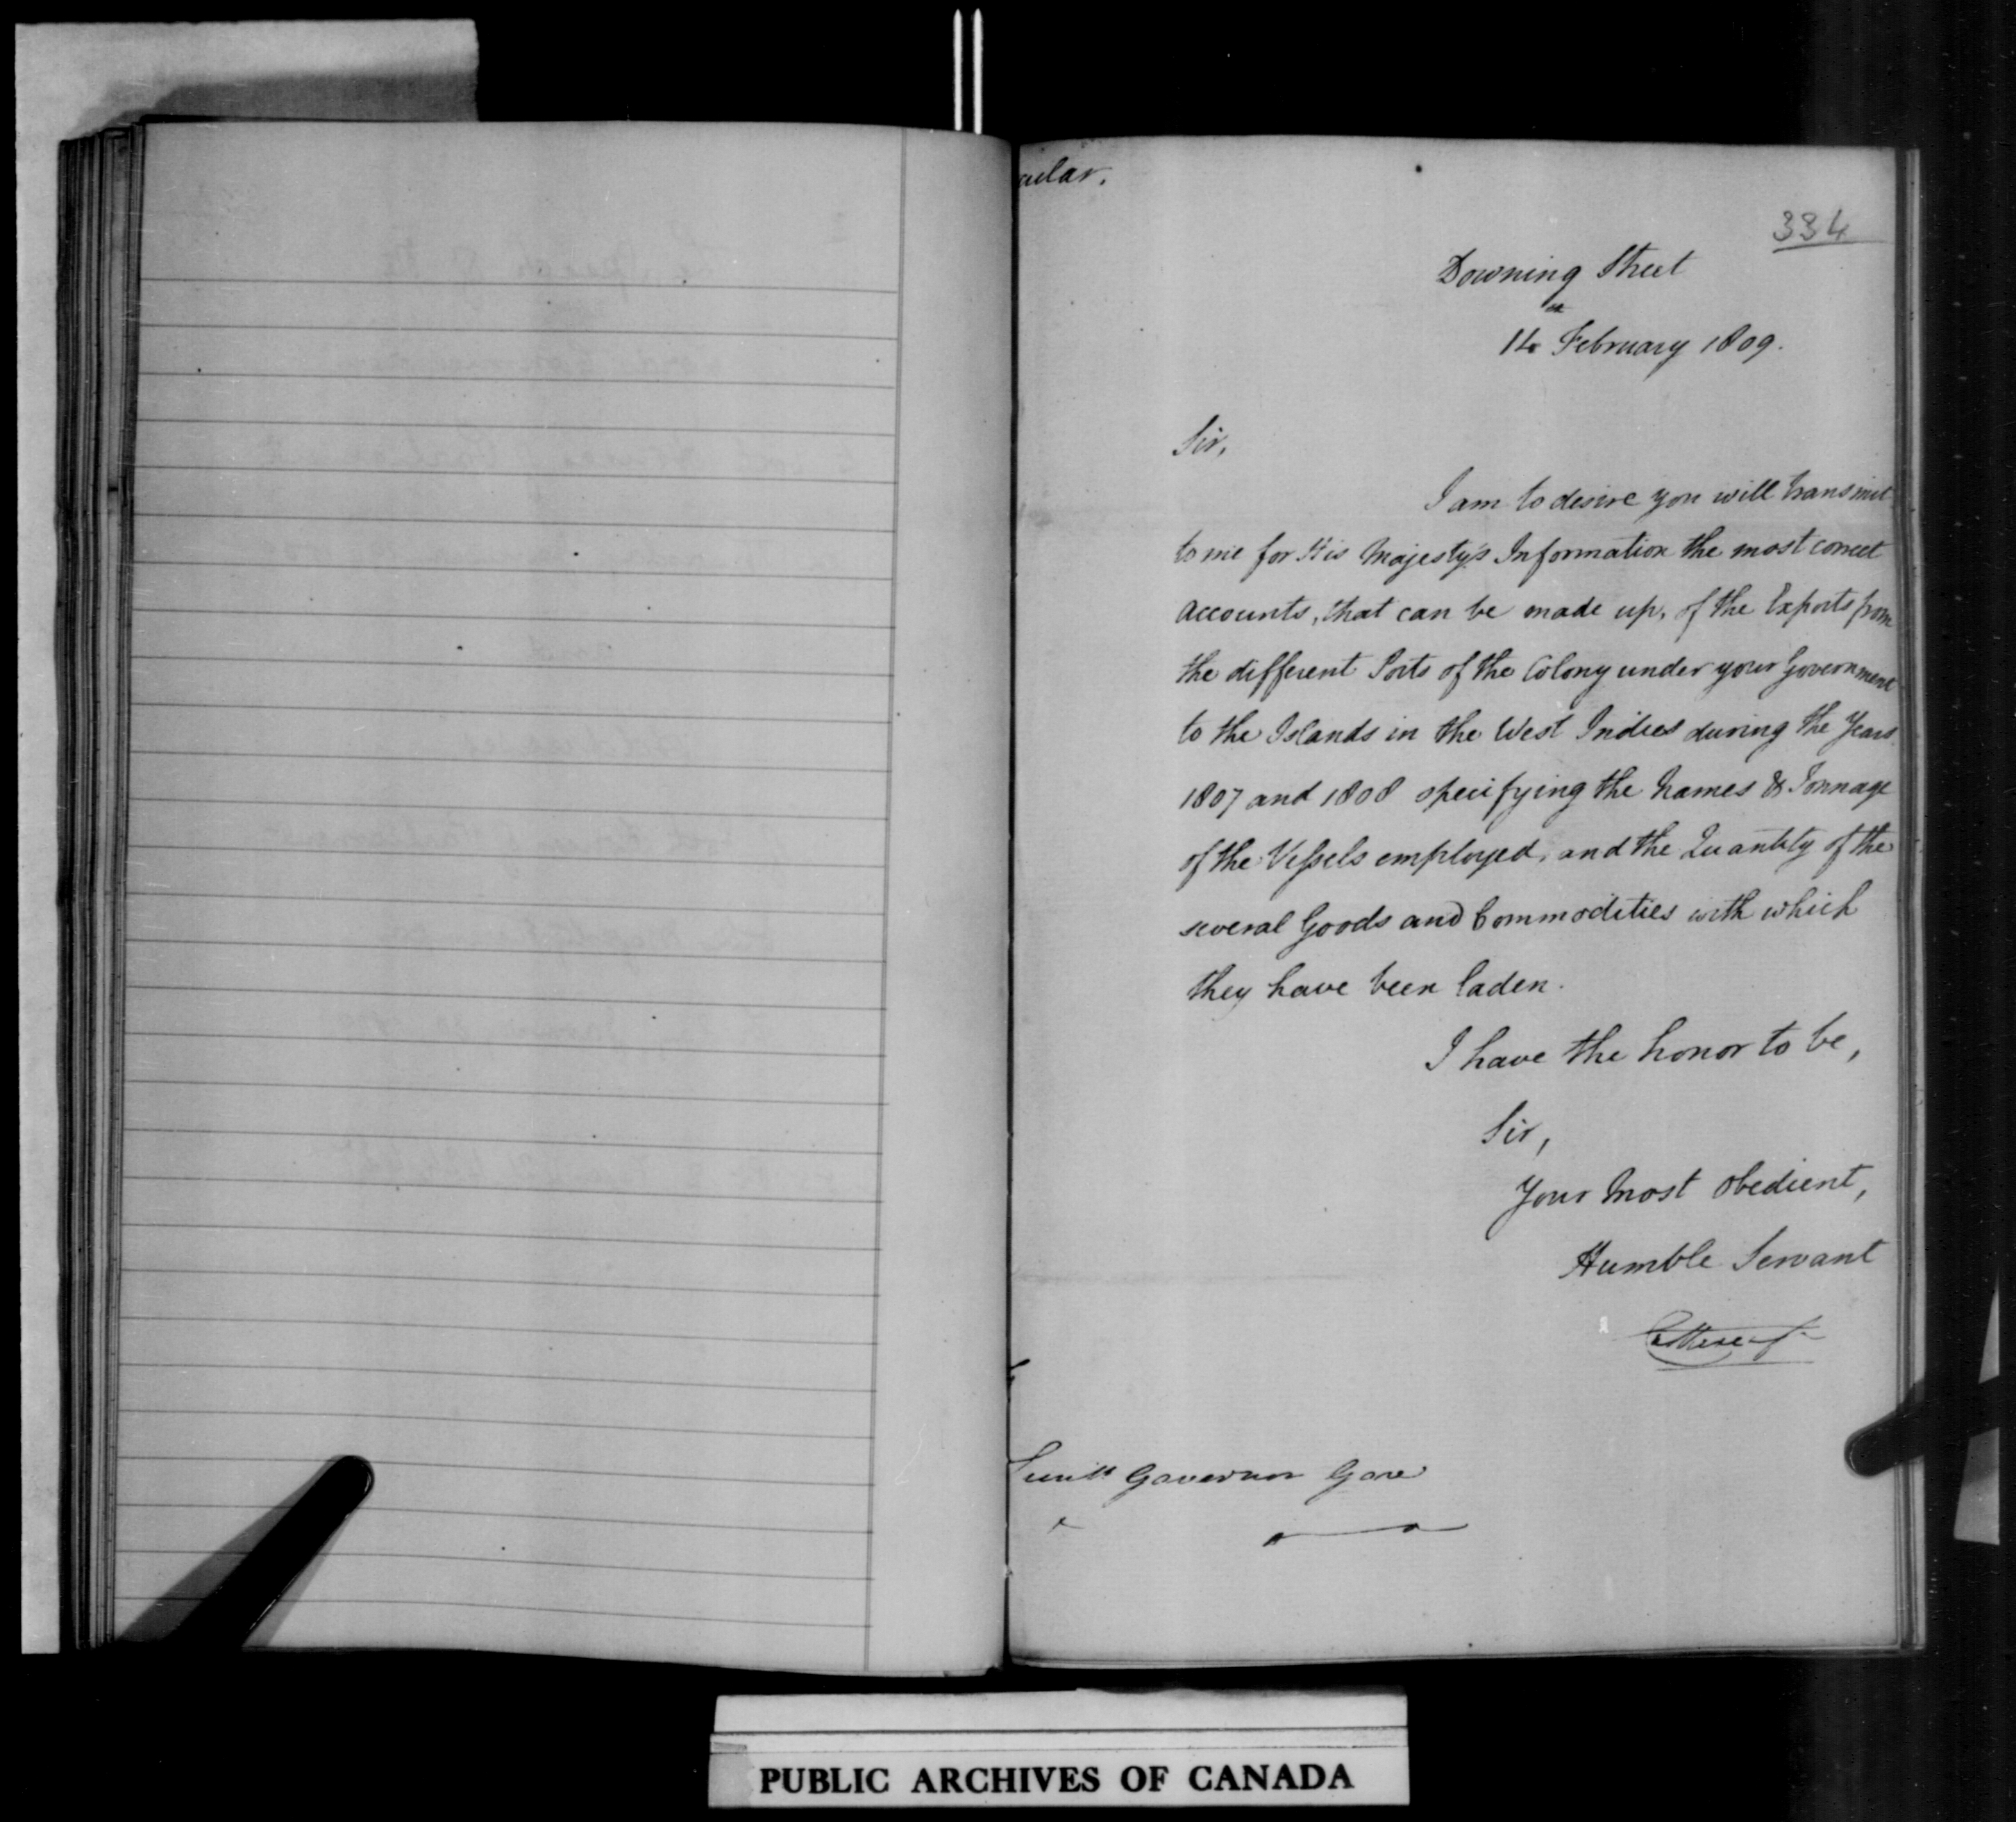 cular.
334
Downing Street
14 February 1809.
Sir,
I am to desire you will transmit
to me for His Majesty's Information the most correct
accounts, that can be made up, of the Exports from
the different Ports of the Colony under your Government
to the Islands in the West Indies during the Years
1807 and 1808 specifying the Names & Tonnage
of the Vessels employed, and the Quantity of the
several Goods and Commodities with which
they have been laden.
I have the honor to be,
Sir,
Your Most Obedient,
Humble Servant
Castlereagh
Lieut Governor Gore
PUBLIC ARCHIVES OF CANADA